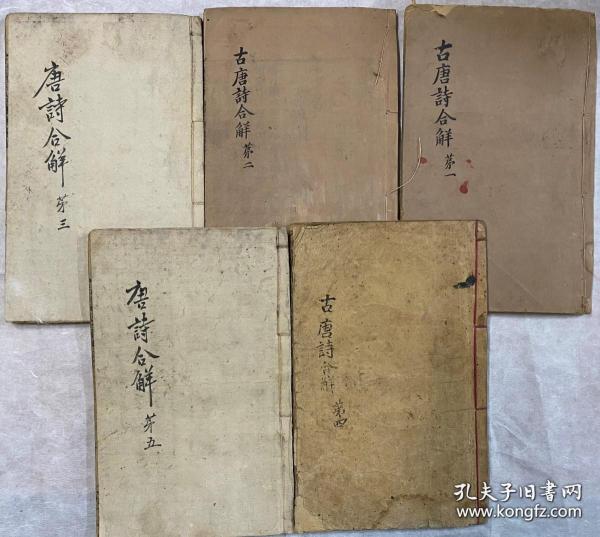 古唐詩合解 第一
古唐詩合解 第二
唐詩合解 第三
古唐詩合解 第四
唐詩合解 第五
孔夫子旧书网
www.kongfz.com